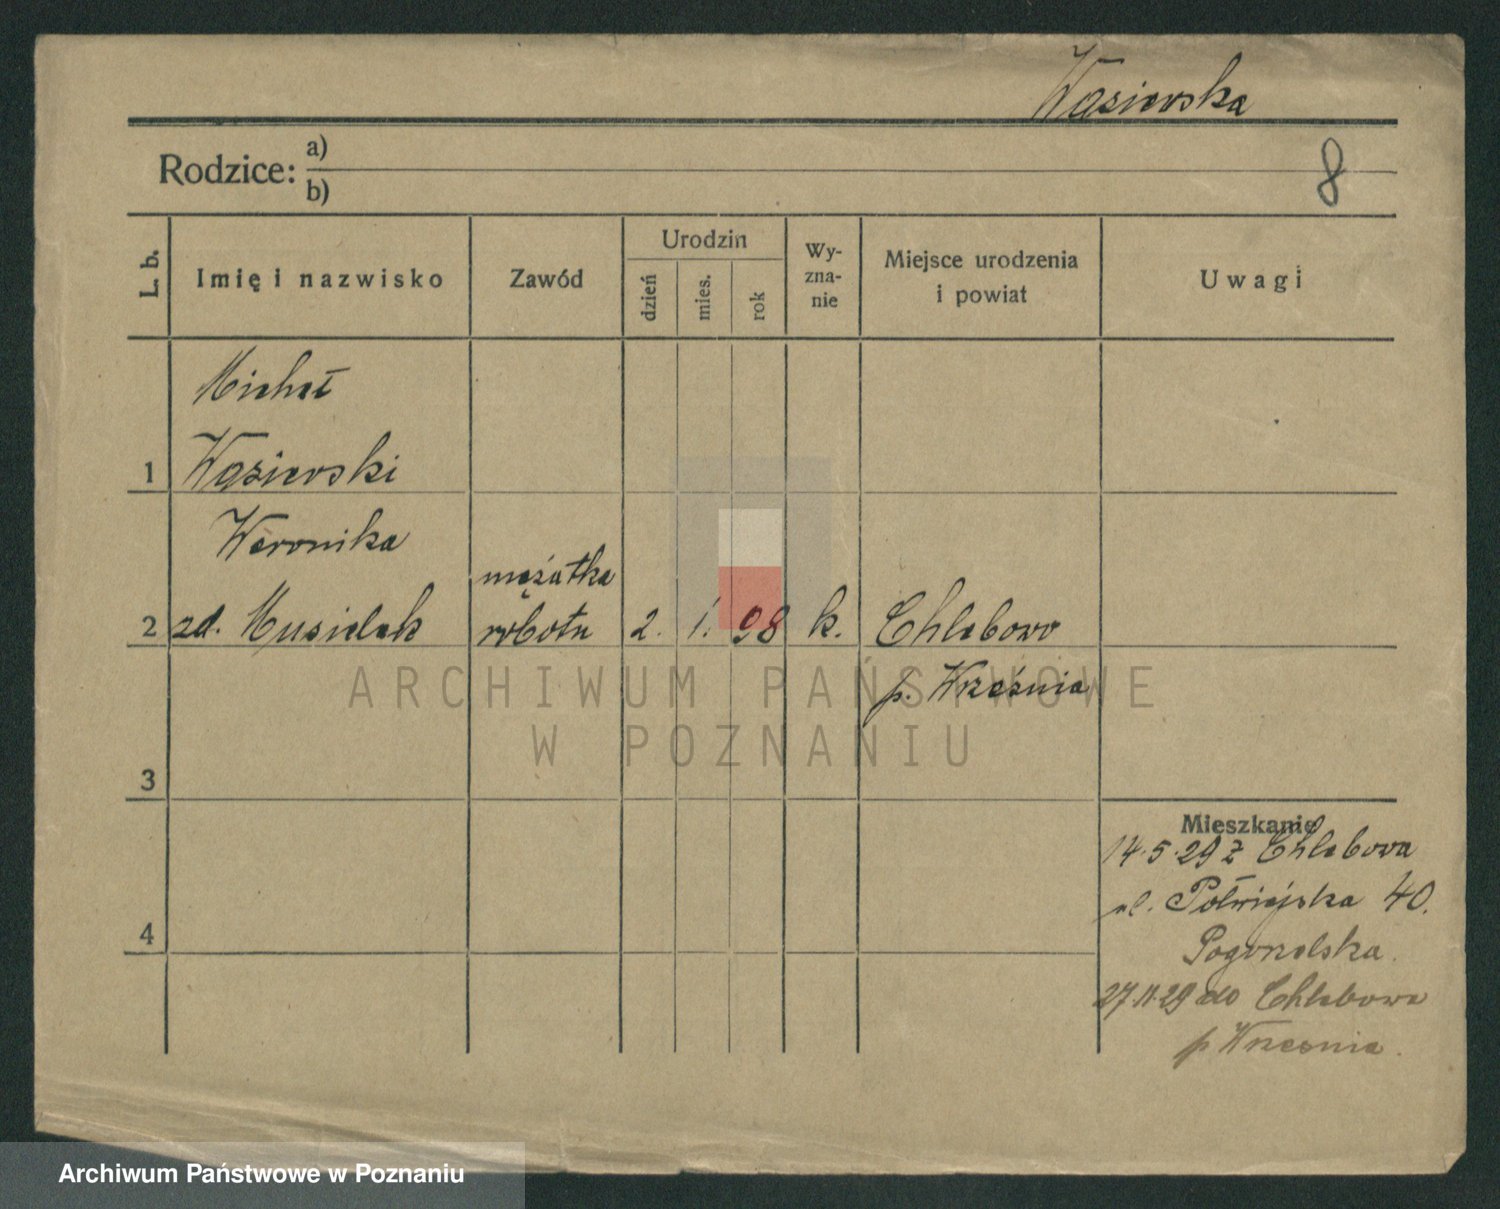 Wąsierska
Rodzice: a)
b)
8
L. b.
Imię i nazwisko
Zawód
Urodzin
dzień
mies.
rok
Wy-
zna-
nie
Miejsce urodzenia
i powiat
Uwagi
Michał
1 Wąsierski
Weronika
mężatka
2 zd. Musielak robotn 2. 1. 98 k. Chlebowo
p. Września
ARCHIWUM PAŃSTWOWE
W POZNANIU
3
Mieszkanie
14.5.29 z Chlebowa
ul. Półwiejska 40.
4
Pogorzelska.
27.11.29 do Chlebowa
p Wrzesnia.
Archiwum Państwowe w Poznaniu